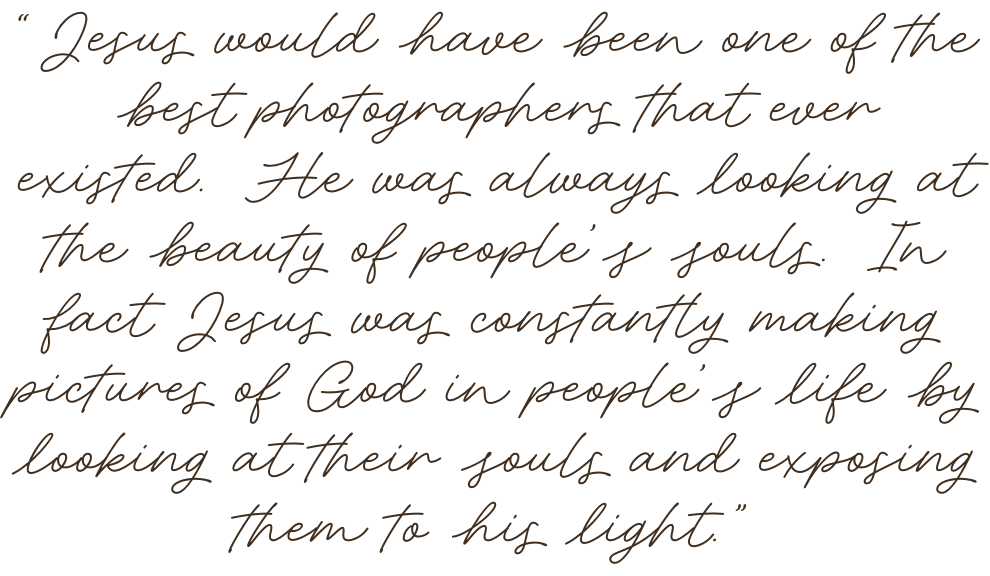 “ Jesus would have been one of the
best photographers that ever
existed. He was always looking at
the beauty of people’s souls. In
fact Jesus was constantly making
pictures of God in people’s life by
looking at their souls and exposing
them to his light.”